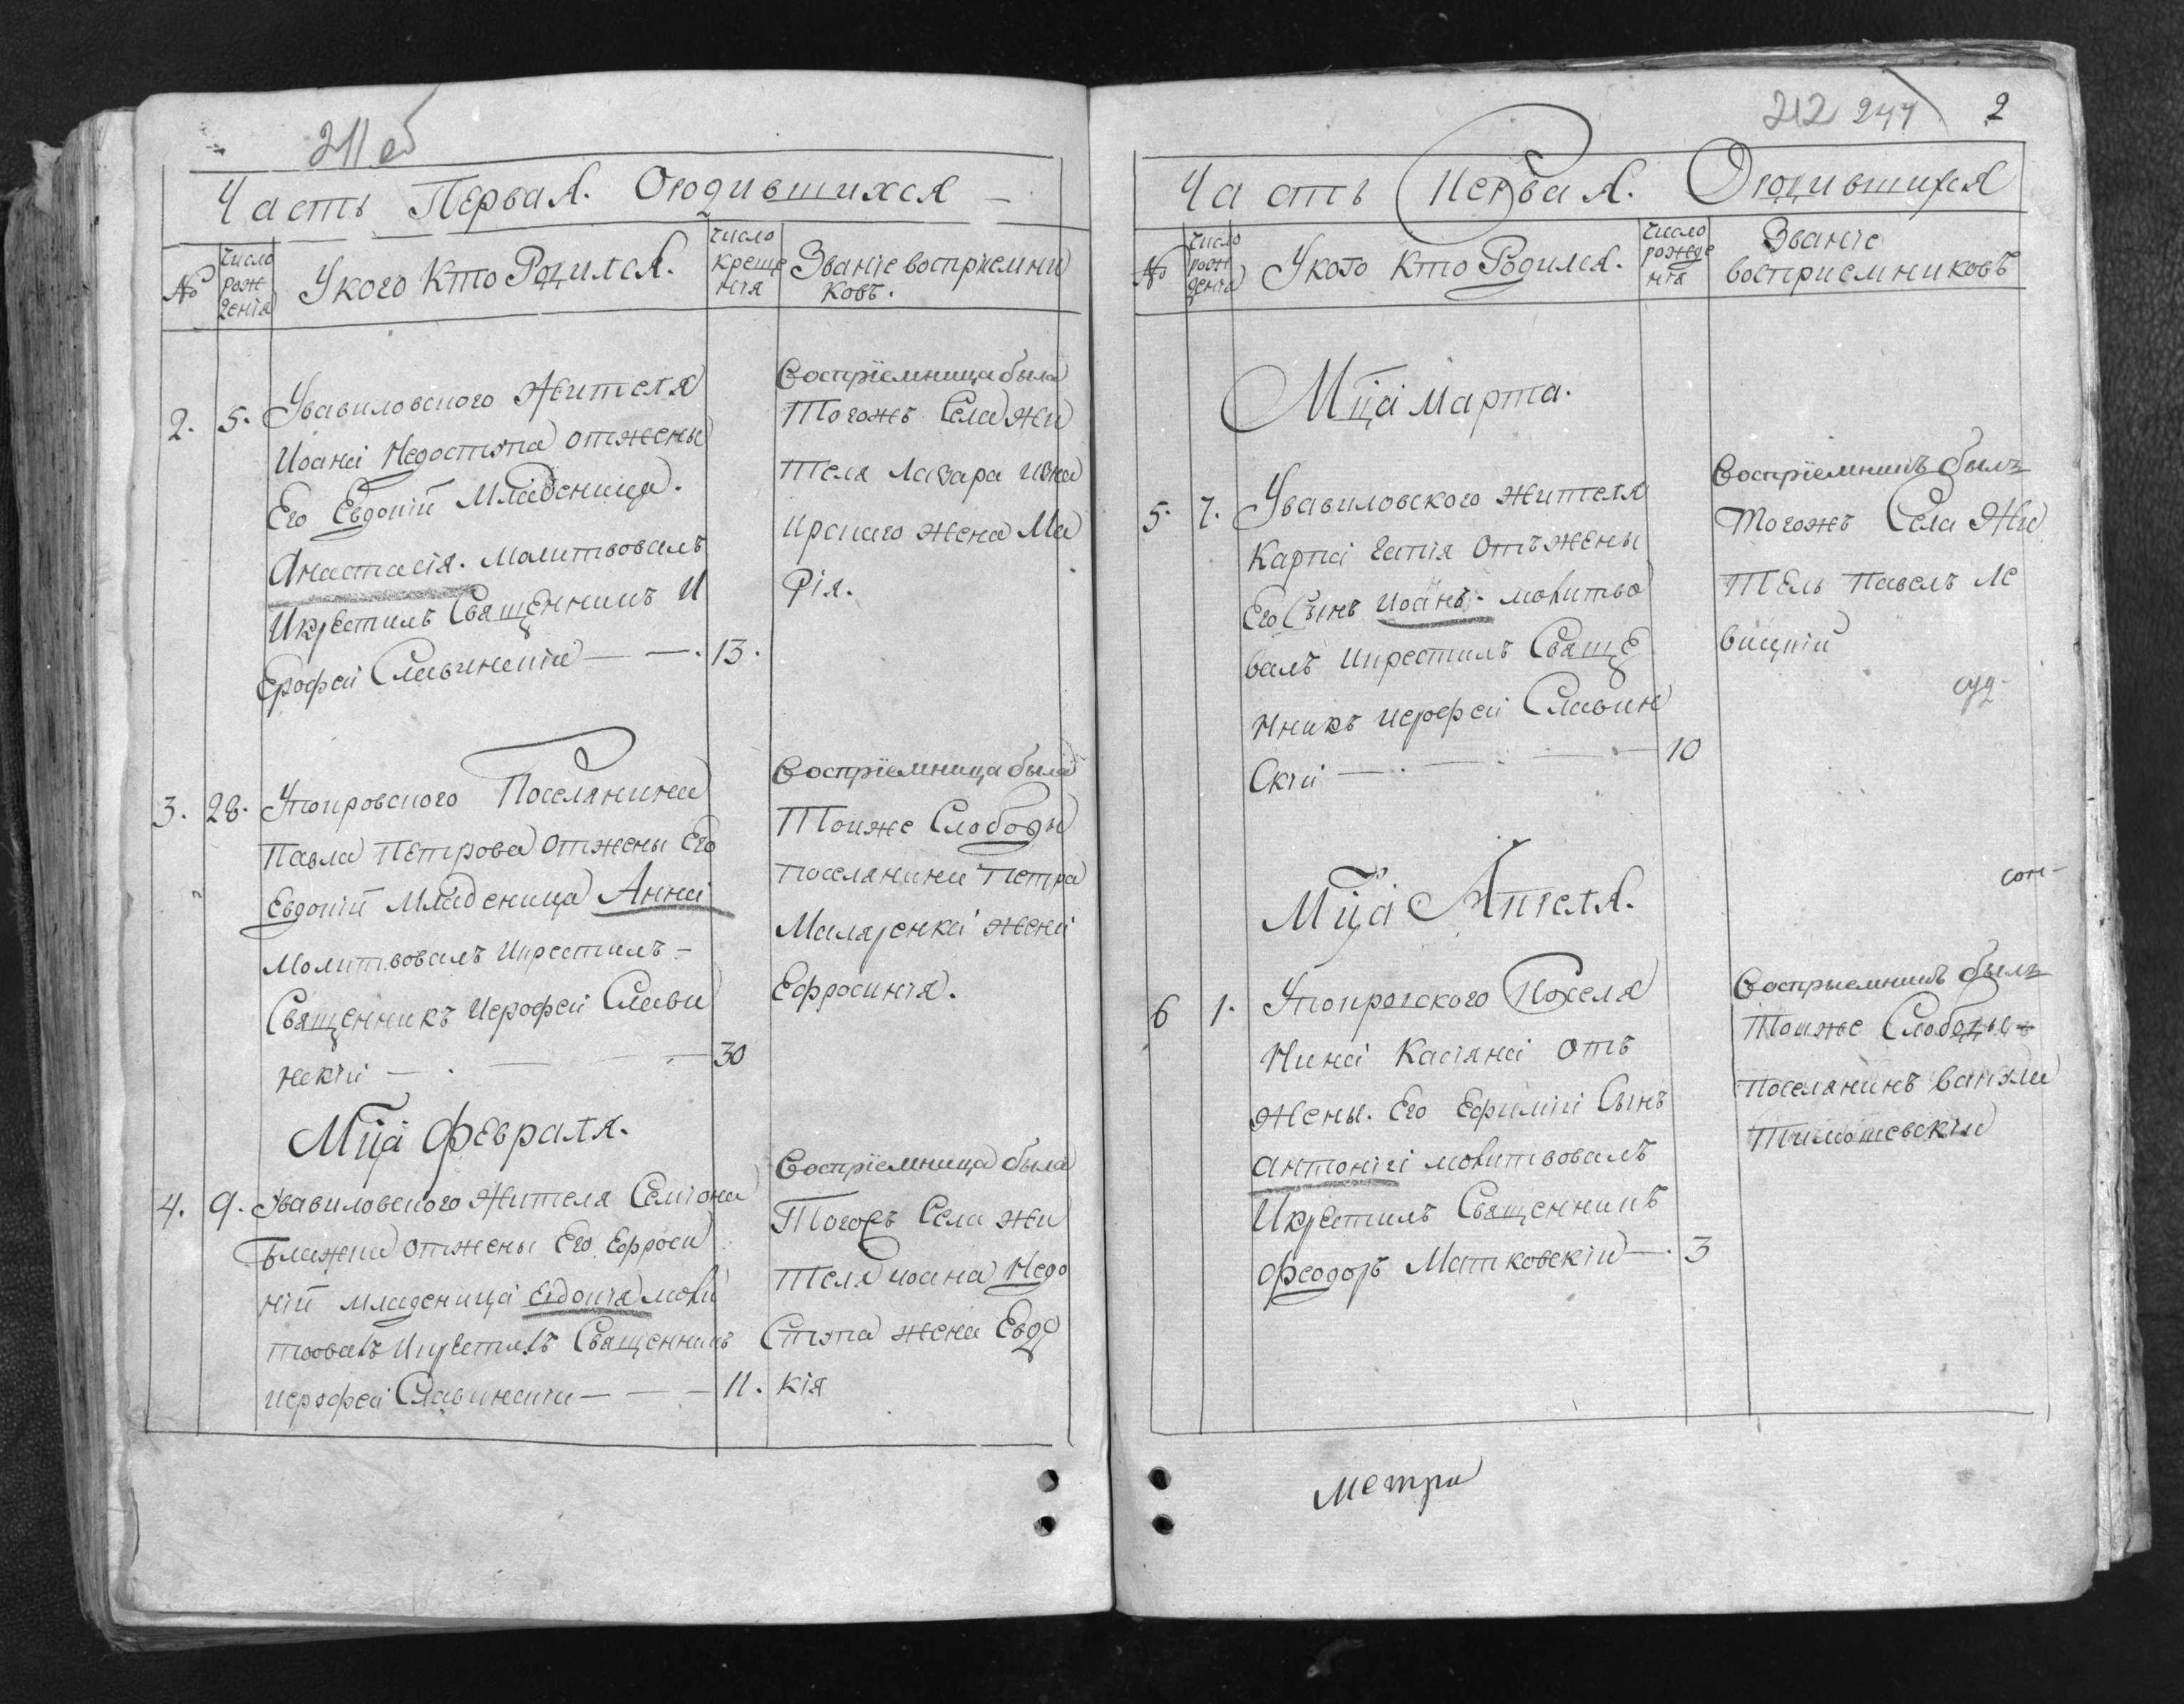 211 об
Часть Первая.Ородившихся
№
Число рож дения
Укого Кто Родился.
Число креще нія
Званіе воспріемни ковъ.
2. 5. Увавиловского Жителя
Иоана Недоступа отжены
Его Евдокіи Младеница.
Анастасія. молитвовалъ
Икрестилъ Священникъ И
Ерофей Славинскій — — . 13.
Воспріемница была
Тогожъ Села жи
теля Лазара
жена Ма
рія.
3. 28. Поселянина
Павла Петрова отжены Его
Евдокіи Младеница Анна
Молитвовалъ Икрестилъ -
Священникъ Иерофей Слави
нскій — . — — 30
Воспріемница была
Тоиже Слободы
поселянина Петра
Маляренка жена
Ефросинія.
Мца февраля.
4. 9. Увавиловского Жителя Семіона
отжены Его Ефроси
ніи младеница Евдокія моли
твовалъ Икрестилъ Священникъ
иерофей Славинскій — — — 11.
Воспріемница была
Тогожъ Села жи
теля иоана Недо
ступа жена Евдо
кія
212 244 2
Часть Первая. Ородившихся
№
Число рож денія
Укого Кто Родился.
Число рожде нія
Званіе воспріемниковъ
Мца марта.
5. 7. Увавиловского жителя
Карпа отъжены
Его Сынъ иоанъ. молитво
валъ икрестилъ Свяще
нникъ иерофей Славин
Скій — . — . — . — 10
Воспріемникъ былъ
Тогожъ Села Жи
Тель Павелъ Ле
вицкій
Мца Апреля.
6 1. Поселя
нина Касіяна отъ
жены. Его Ефиміи Сынъ
антоній молитвовалъ
Икрестилъ Священникъ
Феодоръ Матковскій — . 3
Воспрыемникъ былъ
Тоиже Слободы
поселянинъ
метри